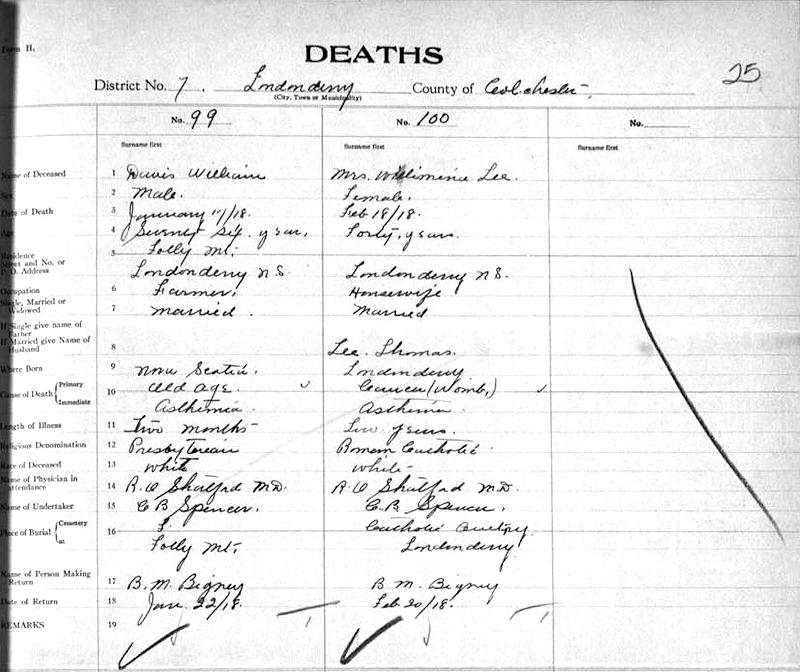 Form H.
DEATHS
25
District No. 7. Londonderry County of Colchester
(City, Town or Municipality)
No. 99 No. 100 No.
Surname first Surname first Surname first
Name of Deceased 1 Davis William Mrs. Williminia Lee.
Sex 2 Male. Female.
Date of Death 3 January 17/18. Feb 18/18.
Age 4 Seventy Six years, Forty years.
Residence 5 Folly Mt.
Street and No. or
P. O. Address Londonderry N S. Londonderry N S.
Occupation 6 Farmer, Housewife
Single, Married or
Widowed 7 Married. Married
If Single give name of
Father
If Married give Name of
Husband 8 Lee Thomas.
Where Born 9 Nova Scotia. Londonderry
Cause of Death Primary 10 Old Age. Cancer (Womb,)
Immediate Asthenia. Asthenia
Length of Illness 11 Two months Two years.
Religious Denomination 12 Presbyterian Roman Catholic
Race of Deceased 13 White White
Name of Physician in
Attendance 14 R. O Shatford M.D. R O Shatford M.D.
Name of Undertaker 15 C B Spencer. C. B. Spencer.
Place of Burial Cemetery at 16 F. Catholic Cemetery
Folly Mt. Londonderry
Name of Person Making
Return 17 B. M. Bigney B. M. Bigney
Date of Return 18 Jan. 22/18. Feb 20/18.
REMARKS 19